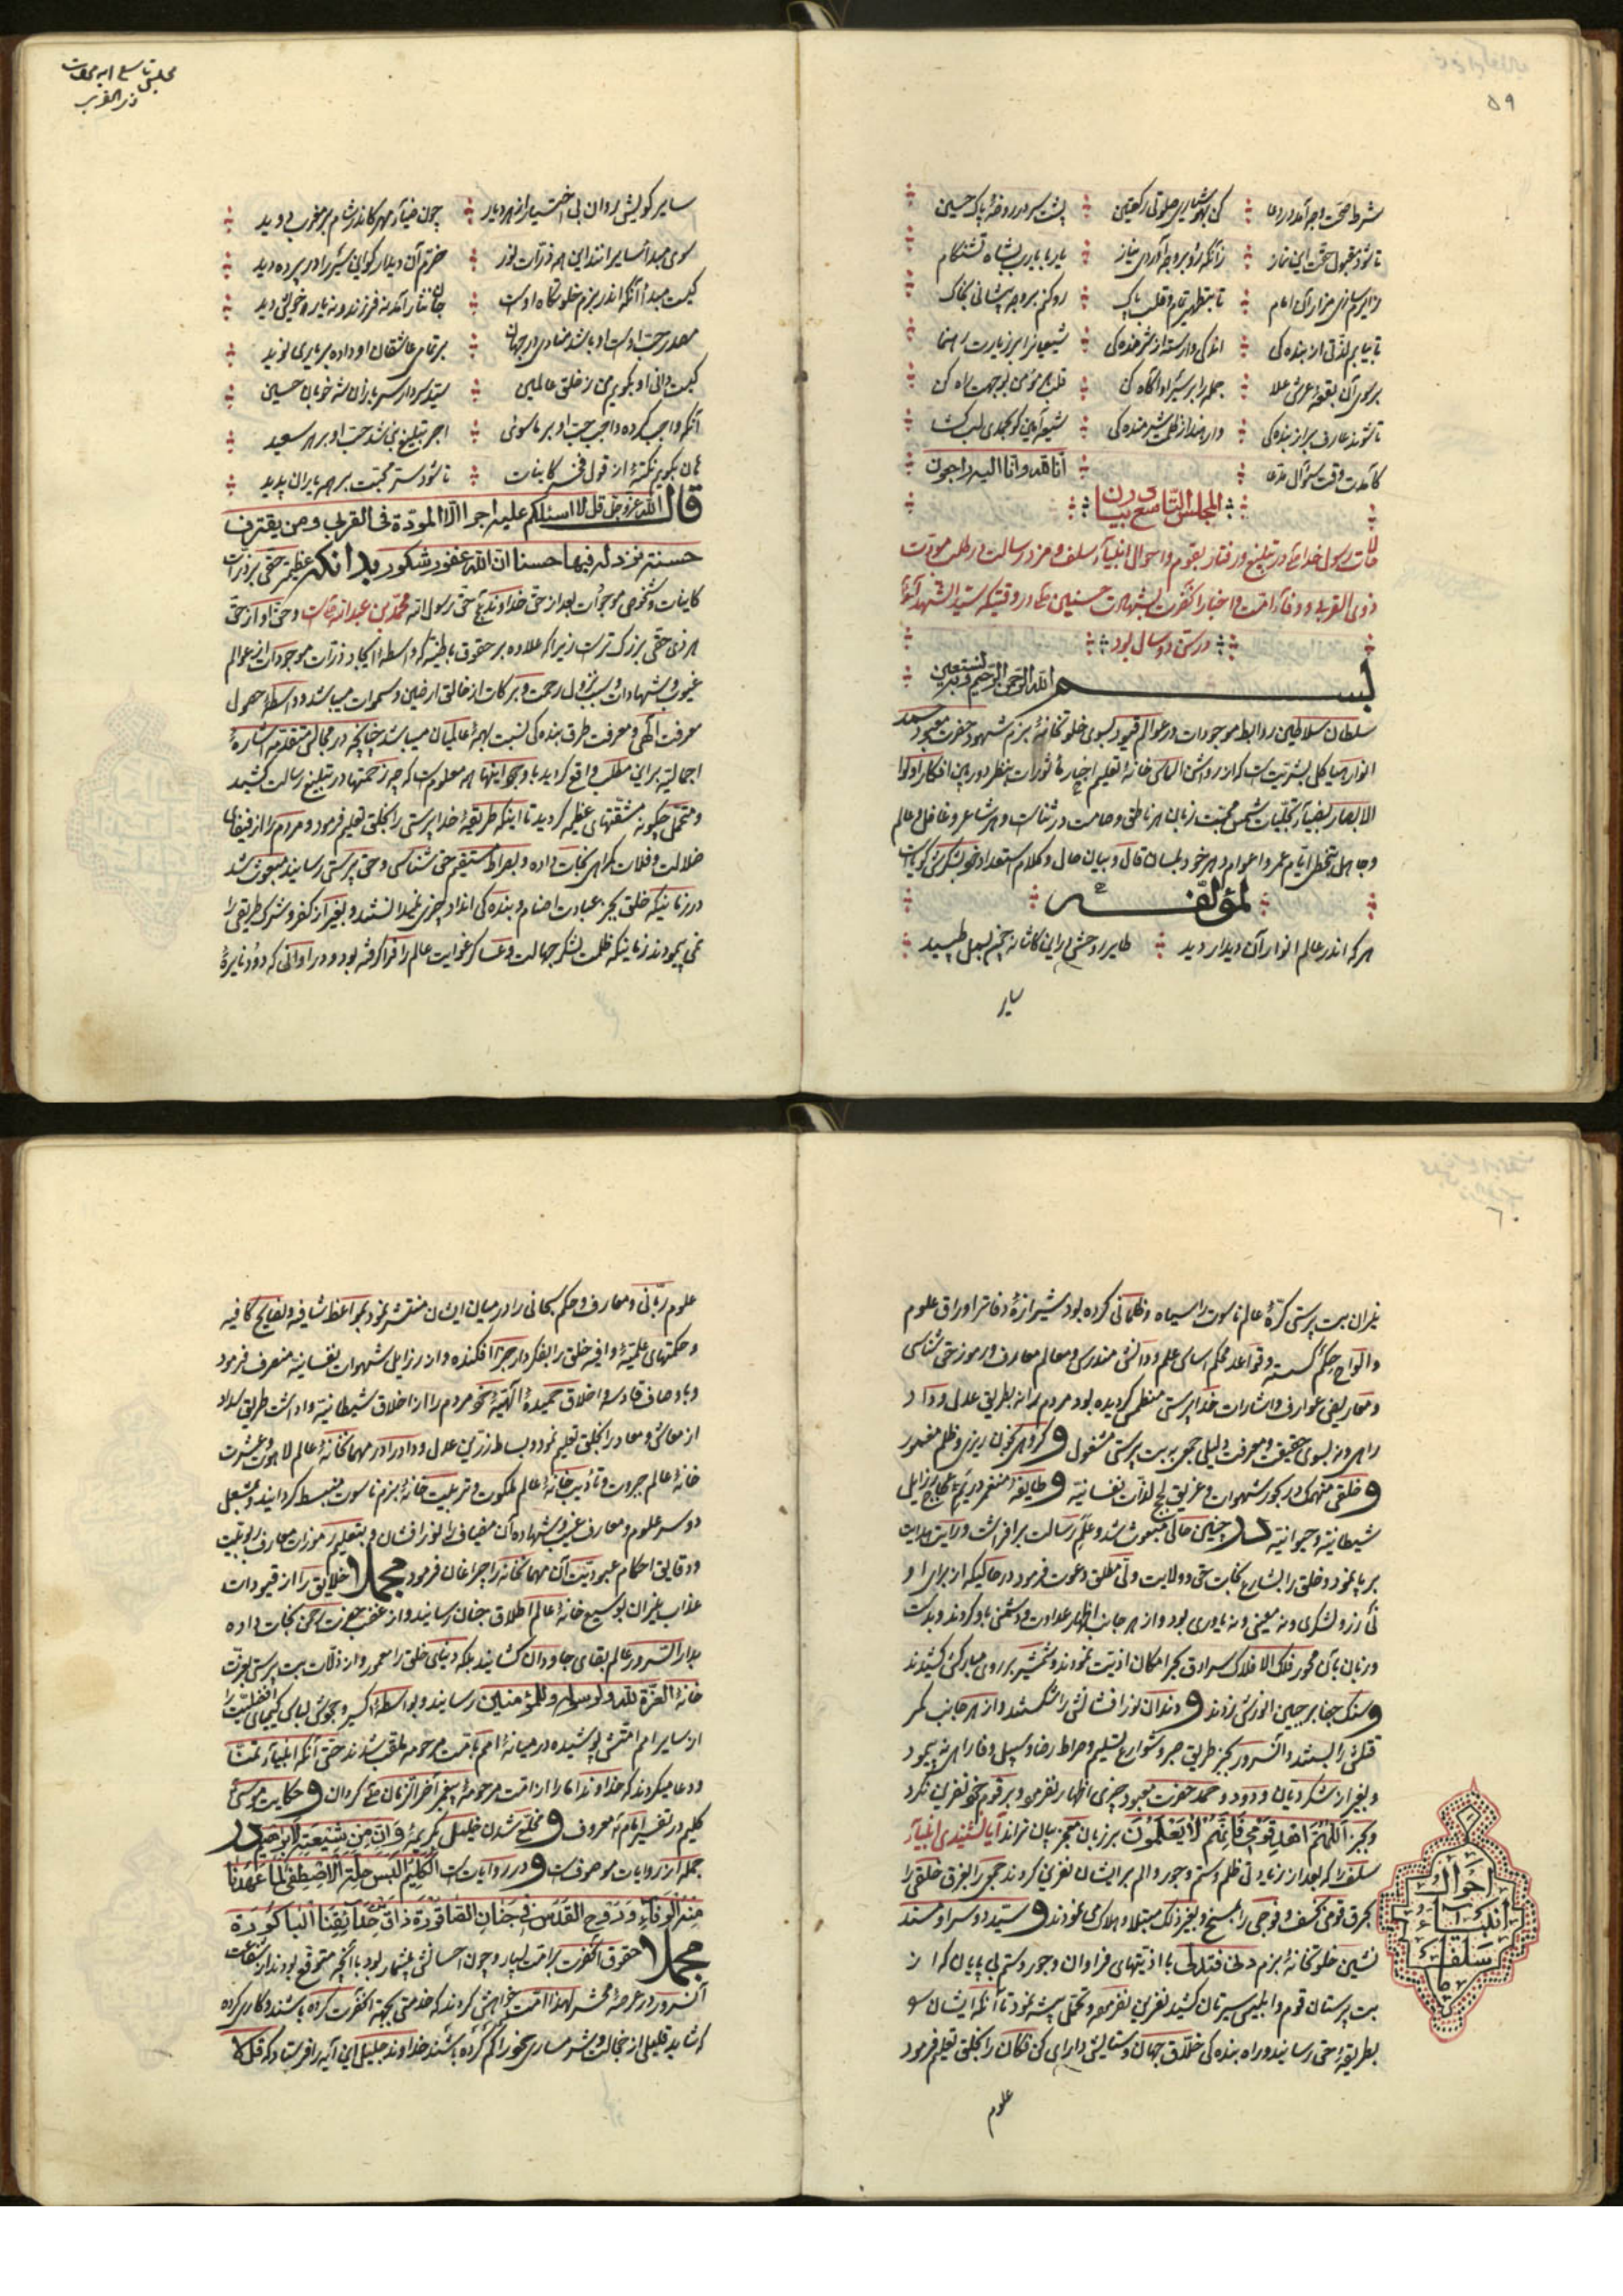 ۵۹
شرط صحت وجه آمد در دعا کن بهوشیاری صلوتی رکعتین پشت سر در روضهٔ پاک حسین
تا شود مقبول حق این نماز زآنکه رو بر وجه آوردی نیاز
زایرم سازی مزار آن امام تا بتطهیر تمام و قلب پاک رو کنم بر وجه پیشانی بخاک
تا بیابم لذتی از بنده کی اندکی وارسته از شرمنده کی شیعیانرا بر زیارت رهنما
بر سوی آن بقعهٔ عرش علا جمله را بر سر او آگاه کن قلب مؤمن
تا شوند عارف بر از بنده کی وارهند از ظلمت شرمنده کی شیعه آمین گو
کآمدت وقت سؤال مدعا انا لله وانا الیه راجعون
المجلس التاسع در بیان
رسول خدا در تبلیغ و رفتار بقوم و احوال انبیاء سلف و مزد رسالت در طلب مودت
ذوی القربی و وفاء امت و اخبار آنحضرت بشهادت حسنین در وقتیکه سید الشهدا
در سن دو سال بود
بسم الله الرحمن الرحیم و به نستعین
سلطان سلاطین روابط موجودات در عوالم قیود بسوی خلوتخانهٔ بزم شهود حضرت معبود
انوار هیاکل بشریت است که از روشن الماس خانهٔ تعلیم
الابصار بضیاء تجلیات شمس محبت زبان هر ناطق و صامت در ثناست و هر شاعر و غافل عالم
و جاهل ایام عمر و اعوام دهر خود بلسان قال و بیان حال و کلام استعداد خود بشکرش گویاست
لمؤلفه
هر که اندر عالم انوار آن دیدار دید طایر روحش در این کاشانه چون بسمل طپید
سایر
مجلس تاسع آیه مودت
ذی القربی
سایر کویش روان بی اختیار از هر دیار چون ضیاء مهر کاندر شام بر مغرب دوید
سوی مبدأ سایرانند این همه ذرات نور خرم آن دیدار کو این سر را در پرده دید
کیست مبدأ آنکه اندر بزم خلوتگاه اوست جان نثار آمد نه فرزند و نه یار و خویش دید
مصدر رحمت اوست او باشد منادی در جهان بر تمام عاشقان او داده بر یاری نوید
کیست دانی او بگویم من ز خلق عالمین سید و سردار سربازان شه خوبان حسین
آنکه واجب کرده واجب حب او بر ماسوی اجر تبلیغ نبی شد حب او بر هر سعید
هان بگویم نکتهٔ از قول فخر کاینات تا شود سر محبت بر همه یاران پدید
قال الله عزوجل قل لا اسئلکم علیه اجرا الا المودة فی القربی ومن یقترف
حسنة نزد له فیها حسنا ان الله غفور شکور بدانکه عظیمتر حقی بر ذرات
کاینات و شخوص موجودات بعد از حق خداوندی حق رسول الله محمد بن عبدالله است و حق او از حق
هر ذی حقی بزرگ تر است زیرا که علاوه بر حقوق باطنیه که واسطهٔ ایجاد ذرات موجودات از عوالم
غیوب و شهادات و سبب نزول رحمت و برکات از خالق ارضین و سموات میباشد و واسطهٔ حصول
معرفت الهی و معرفت طرق بنده کی نسبت بهمه عالمیان میباشد چنانچه در مجالس متقدمه اشارهٔ
اجمالیه بر این مطلب واقع گردید با وجود اینها همه معلوم است که چه زحمتها در تبلیغ رسالت کشید
و متحمل چگونه مشقتهای عظیمه گردید تا اینکه طریقهٔ خدا پرستی را بخلق تعلیم فرمود و مردم را از
ضلالت و فلات گمراهی نجات داده و بصراط مستقیم حق شناسی و حق پرستی رسانید مبعوث شد
در زمانیکه خلق بجز عبادت اصنام و بنده کی انداد چیزی نمیدانستند و بغیر از کفر و شرک طریقی را
نمی پیمودند زمانیکه ظلمت لشکر جهالت و عساکر غوایت عالم را فرا گرفته بود و در اوانی که دود نایرهٔ
۶۰
نیران بت پرستی کرهٔ عالم ناسوت را سیاه و ظلمانی کرده بود شیرازهٔ دفاتر اوراق علوم
و الواح حکم گسسته و قواعد محکم اساس علم و دانش مندرس و معالم معارف و رموز حق شناسی
و معاریض عوارف و اشارات خدا پرستی منطمس گردیده بود مردم را نه بطریق عدل و داد
راهی و نه بسوی حقیقت و معرفت دلیلی جمعی به بت پرستی مشغول و گروهی بخون ریزی و ظلم مغرور
و خلقی منهمک در بحور شهوات و غریق لجج لذات نفسانیه و طایفهٔ منغمر در رزایل
شیطانیه و حیوانیه در چنین حالی مبعوث شد و علم رسالت برافراشت و رایت هدایت
بر پا نمود و خلق را بشارع نجات حق و ولایت ولی مطلق دعوت فرمود در حالیکه از برای او
نه زر و لشکری و نه معینی و نه یاوری بود و از هر جانب اظهار عداوت و دشمنی باو کردند و بدست
و زبان بآن محور فلک الافلاک سرادق بحر امکان اذیت نمودند و شمشیر بر روی مبارکش کشیدند
و سنگ جفا بر جبین انورش زدند و دندان نور افشانش را شکستند و از هر جانب کمر
قتلش را بستند و آنسرور بجز طریق صبر و شوارع تسلیم و صراط رضا و سبیل وفا راهی نه پیمود
و بغیر از شکر دیان ودود و حمد حضرت معبود چیزی اظهار نفرمود و بر قوم خود نفرین نکرد
و بجز اللهم اهد قومی فانهم لا یعلمون بر زبان معجز بیان نراند آیا نشنیدی انبیاء
سلف را که بعد از زیادتی ظلم و ستم و جور و الم بر ایشان نفرین کردند جمعی را بغرق خلقی را
بحرق قومی بخسف و فوجی را بمسخ و بغیر ذلک مبتلا و هلاک می نمودند و سید دو سرا و مسند
نشین خلوتخانهٔ بزم دنی فتدلی با اذیتهای فراوان و جور و ستم بی پایان که از
بت پرستان قوم و ابلیس سیرتان کشید نفرین نفرمود و تحمل پیشه نمود تا آنکه ایشان
بطریقهٔ حق رسانید و راه بنده کی خلاق جهان و ستایش دارای کن فکان را بخلق تعلیم فرمود
احوال
انبیاء
سلف
علوم
علوم ربانی و معارف و حکم سبحانی را در میان ایشان منتشر نمود بمواعظ شافیه و نصایح کافیه
و حکمتهای علمیه وافیه خلق را بفکر دار جزا افکنده و از رزایل شهوات نفسانیه منصرف فرمود
و باوصاف قادسه و اخلاق حمیدهٔ الهیه خود مردم را از اخلاق شیطانیه واداشت طریق سداد
از معاش و معاد را بخلق تعلیم نمود و بساط زرین عدل و داد را در مهمانخانهٔ عالم لاهوت و عشرت
خانهٔ عالم جبروت و تأدیب خانهٔ عالم ملکوت و تربیت خانهٔ بزم ناسوت منبسط گردانید و بمشعل
دو سر علوم و معارف غیب و شهاده آن مضیاف را نور افشان و بتعلیم رموزات معارف ربوبیت
و دقایق احکام عبودیت آن مهمانخانه را چراغان فرمود مجملا خلایق را از قیودات
عذاب نیران بوسیع خانهٔ عالم اطلاق جنان رسانید و از غضب حضرت رحمن نجات داده
بدار السرور عالم بقای جاودان کشانید بلکه دنیای خلق را معمور و از ذلت بت پرستی بعزت
خانهٔ العزة لله ولرسوله وللمؤمنین رسانید و بواسطهٔ اکسیر وجودش لباس کیمیای افضلیت را
از سایر امم امتش پوشیده در میانهٔ امم بامت مرحومه ملقب شدند حتی آنکه انبیاء تمنا
و دعا میکردند که خداوندا ما را از امت مرحومهٔ پیغمبر آخر الزمان گردان و حکایت موسی
کلیم در تفسیر امام معروف و مخلع شدن خلیل بکریمهٔ وان من شیعته لابراهیم در
جمله از روایات موصوفست و در روایات است الکلیم البس حلة الاصطفی لما عهدنا
منه الوفاء وروح القدس فی جنان الصاقورة ذاق حدائقنا الباکورة
مجملا حقوق آنحضرت بر امت بسیار و چون احسانش بیشمار بود با آنچه متوقع بودند از شفاعت
آنسرور در عرصهٔ محشر لهذا امت خواهش کردند که خدمتی بجهة آنحضرت کرده باشند و کاری کرده
که شاید قلیلی از خجالت و شرمساری خود را کم کرده باشند خداوند جلیل این آیه را فرستاد که قل لا